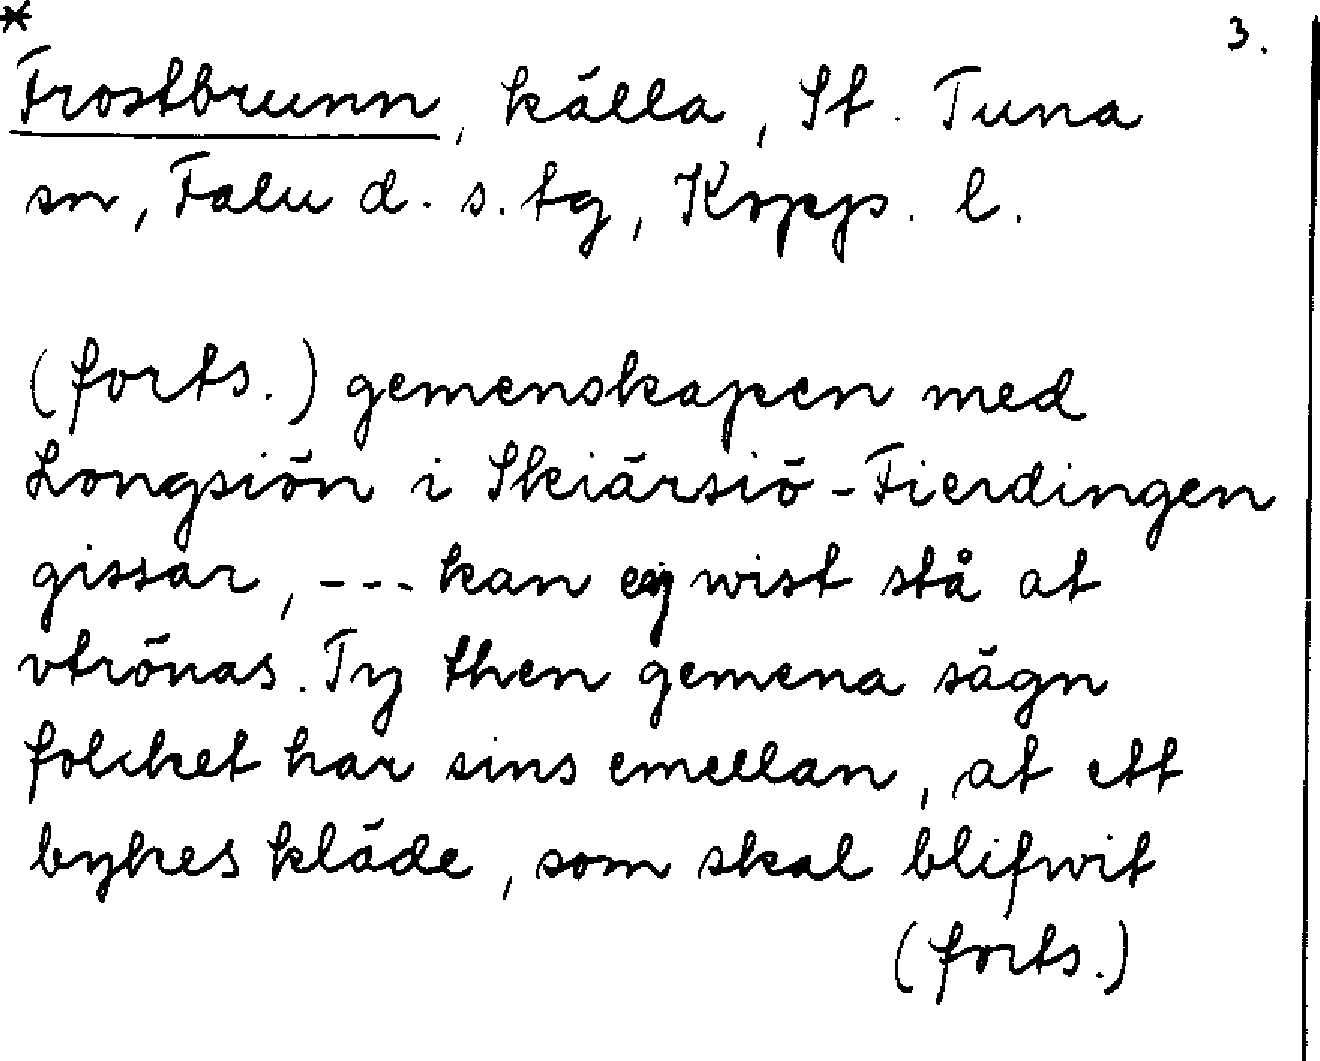 * 3.
Frostbrunn, källa, St. Tuna
sn, Falu d. s. tg, Kopp. l.
(forts.) gemenskapen med
Longsiön i Skiärsiö-Fierdingen
gissar, --- kan ej wist stå at
vtrönas. Ty then gemena sägn
folcket har sins emellan, at ett
bykes kläde, som skal blifwit
(forts.)